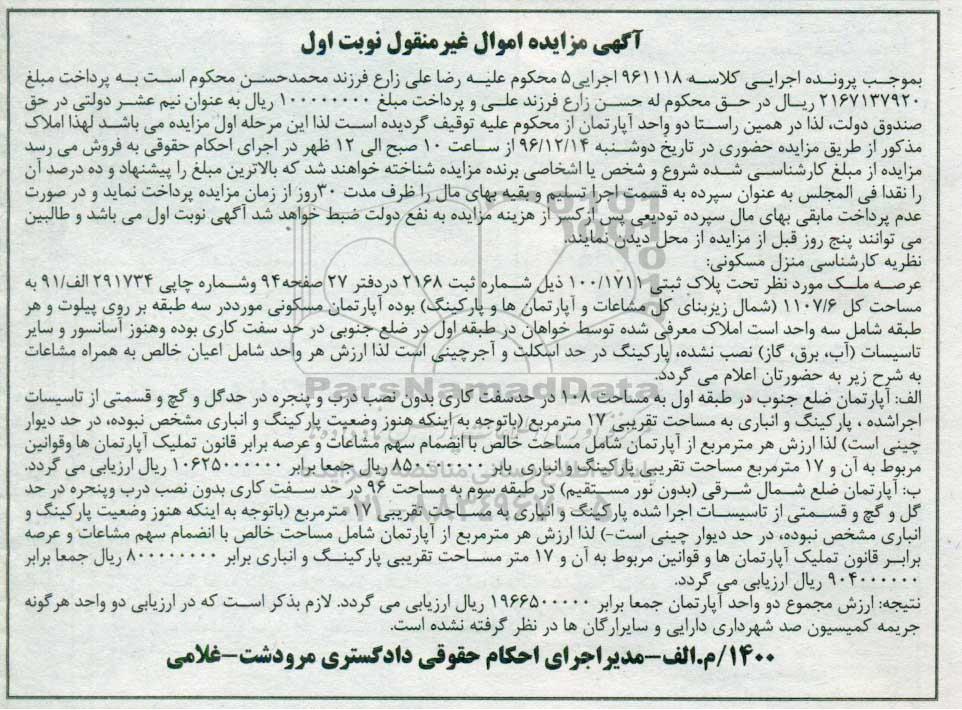 آگهی مزایده اموال غیرمنقول نوبت اول
بموجب پرونده اجرایی کلاسه ۹۶۱۱۱۸ اجرایی۵ محکوم علیه رضا علی زارع فرزند محمدحسن محکوم است به پرداخت مبلغ
۲۱۶۷۱۳۷۹۲۰ ریال در حق محکوم له حسن زارع فرزند علی و پرداخت مبلغ ۱۰۰۰۰۰۰۰۰ ریال به عنوان نیم عشر دولتی در حق
صندوق دولت، لذا در همین راستا دو واحد آپارتمان از محکوم علیه توقیف گردیده است لذا این مرحله اول مزایده می باشد لهذا املاک
مذکور از طریق مزایده حضوری در تاریخ دوشنبه ۹۶/۱۲/۱۴ از ساعت ۱۰ صبح الی ۱۲ ظهر در اجرای احکام حقوقی به فروش می رسد
مزایده از مبلغ کارشناسی شده شروع و شخص یا اشخاصی برنده مزایده شناخته خواهند شد که بالاترین مبلغ را پیشنهاد و ده درصد آن
را نقدا فی المجلس به عنوان سپرده به قسمت اجرا تسلیم و بقیه بهای مال را ظرف مدت ۳۰روز از زمان مزایده پرداخت نماید و در صورت
عدم پرداخت مابقی بهای مال سپرده تودیعی پس ازکسر از هزینه مزایده به نفع دولت ضبط خواهد شد آگهی نوبت اول می باشد و طالبین
می توانند پنج روز قبل از مزایده از محل دیدن نمایند.
نظریه کارشناسی منزل مسکونی:
عرصه ملک مورد نظر تحت پلاک ثبتی ۱۰۰/۱۷۱۱ ذیل شماره ثبت ۲۱۶۸ دردفتر ۲۷ صفحه۹۴ وشماره چاپی ۲۹۱۷۳۴ الف/۹۱ به
مساحت کل ۱۱۰۷/۶ (شمال زیربنای کل مشاعات و آپارتمان ها و پارکینگ) بوده آپارتمان مسکونی مورددر سه طبقه بر روی پیلوت و هر
طبقه شامل سه واحد است املاک معرفی شده توسط خواهان در طبقه اول در ضلع جنوبی در حد سفت کاری بوده وهنوز آسانسور و سایر
تاسیسات (آب، برق، گاز) نصب نشده، پارکینگ در حد اسکلت و آجرچینی است لذا ارزش هر واحد شامل اعیان خالص به همراه مشاعات
به شرح زیر به حضورتان اعلام می گردد.
الف: آپارتمان ضلع جنوب در طبقه اول به مساحت ۱۰۸ در حدسفت کاری بدون نصب درب و پنجره در حدگل و گچ و قسمتی از تاسیسات
اجراشده ، پارکینگ و انباری به مساحت تقریبی ۱۷ مترمربع (باتوجه به اینکه هنوز وضعیت پارکینگ و انباری مشخص نبوده، در حد دیوار
چینی است) لذا ارزش هر مترمربع از آپارتمان شامل مساحت خالص با انضمام سهم مشاعات و عرصه برابر قانون تملیک آپارتمان ها وقوانین
مربوط به آن و ۱۷ مترمربع مساحت تقریبی پارکینگ و انباری بابر ۸۵۰۰۰۰۰۰۰ ریال جمعا برابر ۱۰۶۲۵۰۰۰۰۰۰ ریال ارزیابی می گردد.
ب: آپارتمان ضلع شمال شرقی (بدون نور مستقیم) در طبقه سوم به مساحت ۹۶ در حد سفت کاری بدون نصب درب وپنجره در حد
گل و گچ و قسمتی از تاسیسات اجرا شده پارکینگ و انباری به مساحت تقریبی ۱۷ مترمربع (باتوجه به اینکه هنوز وضعیت پارکینگ و
انباری مشخص نبوده، در حد دیوار چینی است-) لذا ارزش هر مترمربع از آپارتمان شامل مساحت خالص با انضمام سهم مشاعات و عرصه
برابر قانون تملیک آپارتمان ها و قوانین مربوط به آن و ۱۷ متر مساحت تقریبی پارکینگ و انباری برابر ۸۰۰۰۰۰۰۰۰ ریال جمعا برابر
۹۰۴۰۰۰۰۰۰ ریال ارزیابی می گردد.
نتیجه: ارزش مجموع دو واحد آپارتمان جمعا برابر ۱۹۶۶۵۰۰۰۰۰ ریال ارزیابی می گردد. لازم بذکر است که در ارزیابی دو واحد هرگونه
جریمه کمیسیون صد شهرداری دارایی و سایرارگان ها در نظر گرفته نشده است.
۱۴۰۰/م.الف-مدیراجرای احکام حقوقی دادگستری مرودشت-غلامی
ParsNamadData